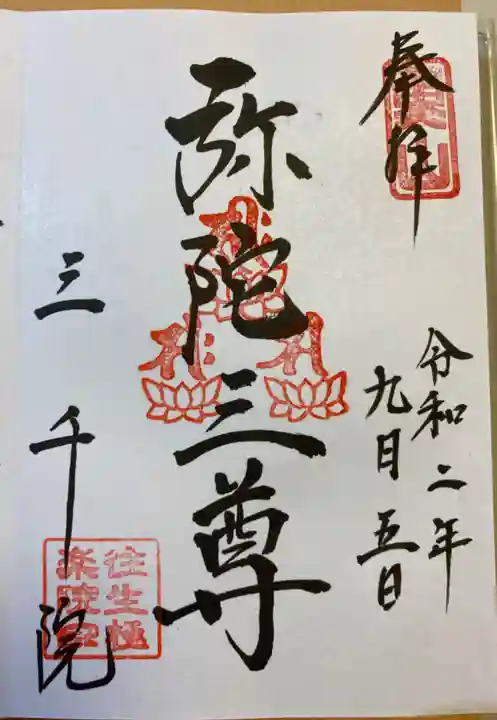 奉拝
令和二年
九月五日
弥陀三尊
三千院
往生極
楽院印